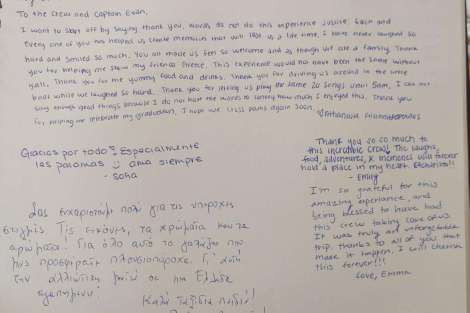 To the Crew and Captain Evan,
I want to start off by saying thank you, words do not do this experience justice. Each and
every one of you has helped us create memories that will last us a life time, I have never laughed so
hard and smiled so much. You all made us feel so welcome and as though we are a family. Thank
you for helping me show my friends Greece. This experience would not have been the same without
yall. Thank you for the yummy food and drinks. Thank you for driving us around in the little
boat while we laughed so hard. Thank you for letting us play the same 20 songs until 5am, I can not
say enough great things because I do not have the words to convey how much I enjoyed this. Thank you
for helping me celebrate my graduation, I hope we cross paths again soon.
Gracias por todo! Especialmente
las :) ana siempre
- Sofia
Thank you so so much to
this incredible crew! The laughs,
food, adventures, & memories will forever
hold a place in my heart.
- Emily
I'm so grateful for this
amazing experience, and
being blessed to have had
this crew taking care of us.
It was truly an unforgettable
trip. Thanks to all of you that
made it happen, I will cherish
this forever!!!
Love, Emma
Σας ευχαριστούμε πολύ για τις υπέροχες
στιγμές. Τις εικόνες, τα χρώματα και τα
αρώματα. Για όλο αυτό το γαλάζιο που
μας προσφέρατε πλουσιοπάροχα. Γι' αυτή
την αλλιώτικη μαζί σε μια Ελλάδα
αγαπημένη!
Καλά Ταξίδια παιδιά!